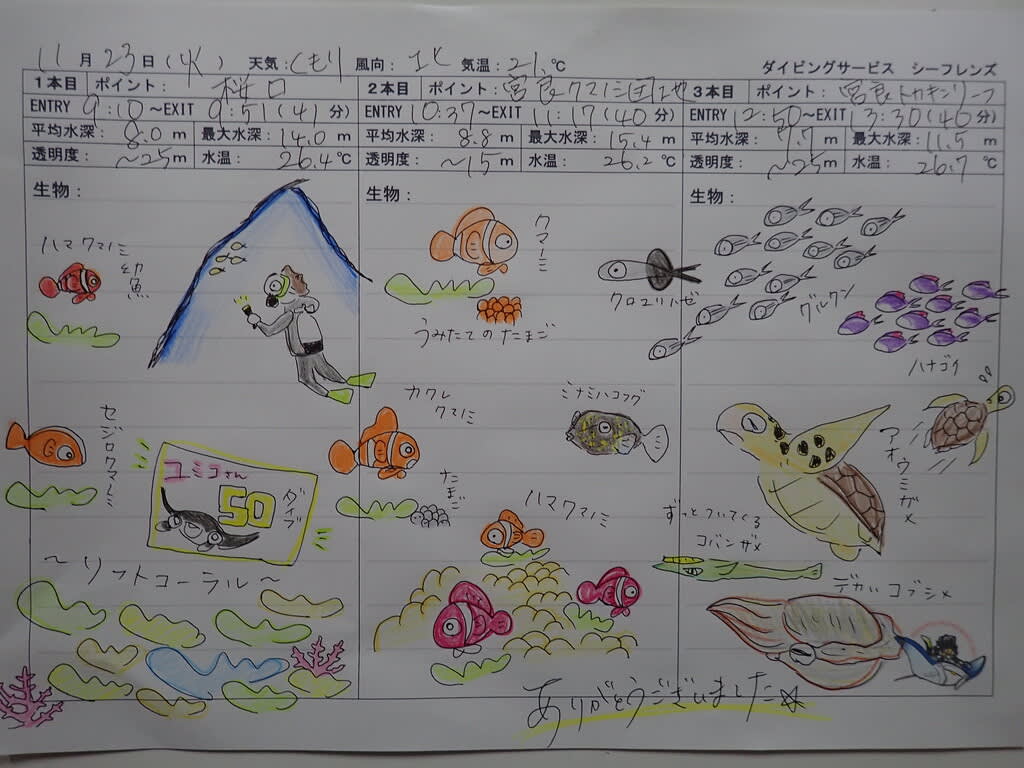 11月23日(火) 天気:くもり 風向:北 気温:21.℃
ダイビングサービス シーフレンズ
1本目 ポイント: 桜口
ENTRY 9:10~EXIT 9:51(41分)
平均水深: 8.0 m 最大水深: 14.0 m
透明度: ~25m 水温: 26.4℃
生物:
ハマクマノミ
幼魚
セジロクマノミ
ユミコさん
50
ダイブ
~リフトコーラル~
2本目 ポイント: 宮良クマノミ団地
ENTRY 10:37~EXIT 11:17(40分)
平均水深: 8.8 m 最大水深: 15.4 m
透明度: ~15m 水温: 26.2℃
生物:
クマノミ
うみたてのたまご
クロユリハゼ
カクレ
クマノミ
たまご
ミナミハコフグ
ハマクマノミ
3本目 ポイント: 宮良トカキンリーフ
ENTRY 12:50~EXIT 13:30(40分)
平均水深: 7.7 m 最大水深: 11.5 m
透明度: ~25m 水温: 26.7℃
生物:
グルクン
ハナゴイ
アオウミガメ
ずっとついてくる
コバンザメ
デカいコブシメ
ありがとうございました☆